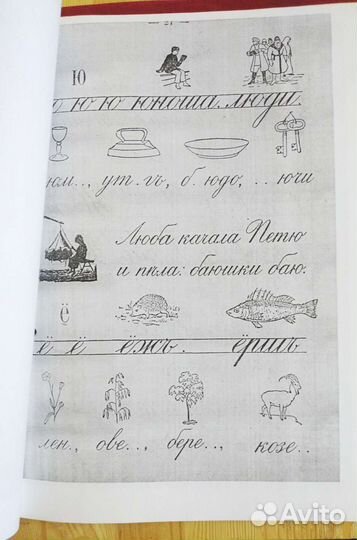 — 21 —
Ю
ю ю юноша. люди.
юм.., ут.гъ, б.юдо, ..ючи
Люба качала Петю
и пѣла: баюшки баю.
ё
ё ё ёжъ. ёршъ
лен., ове.., бере.., козе..
Avito